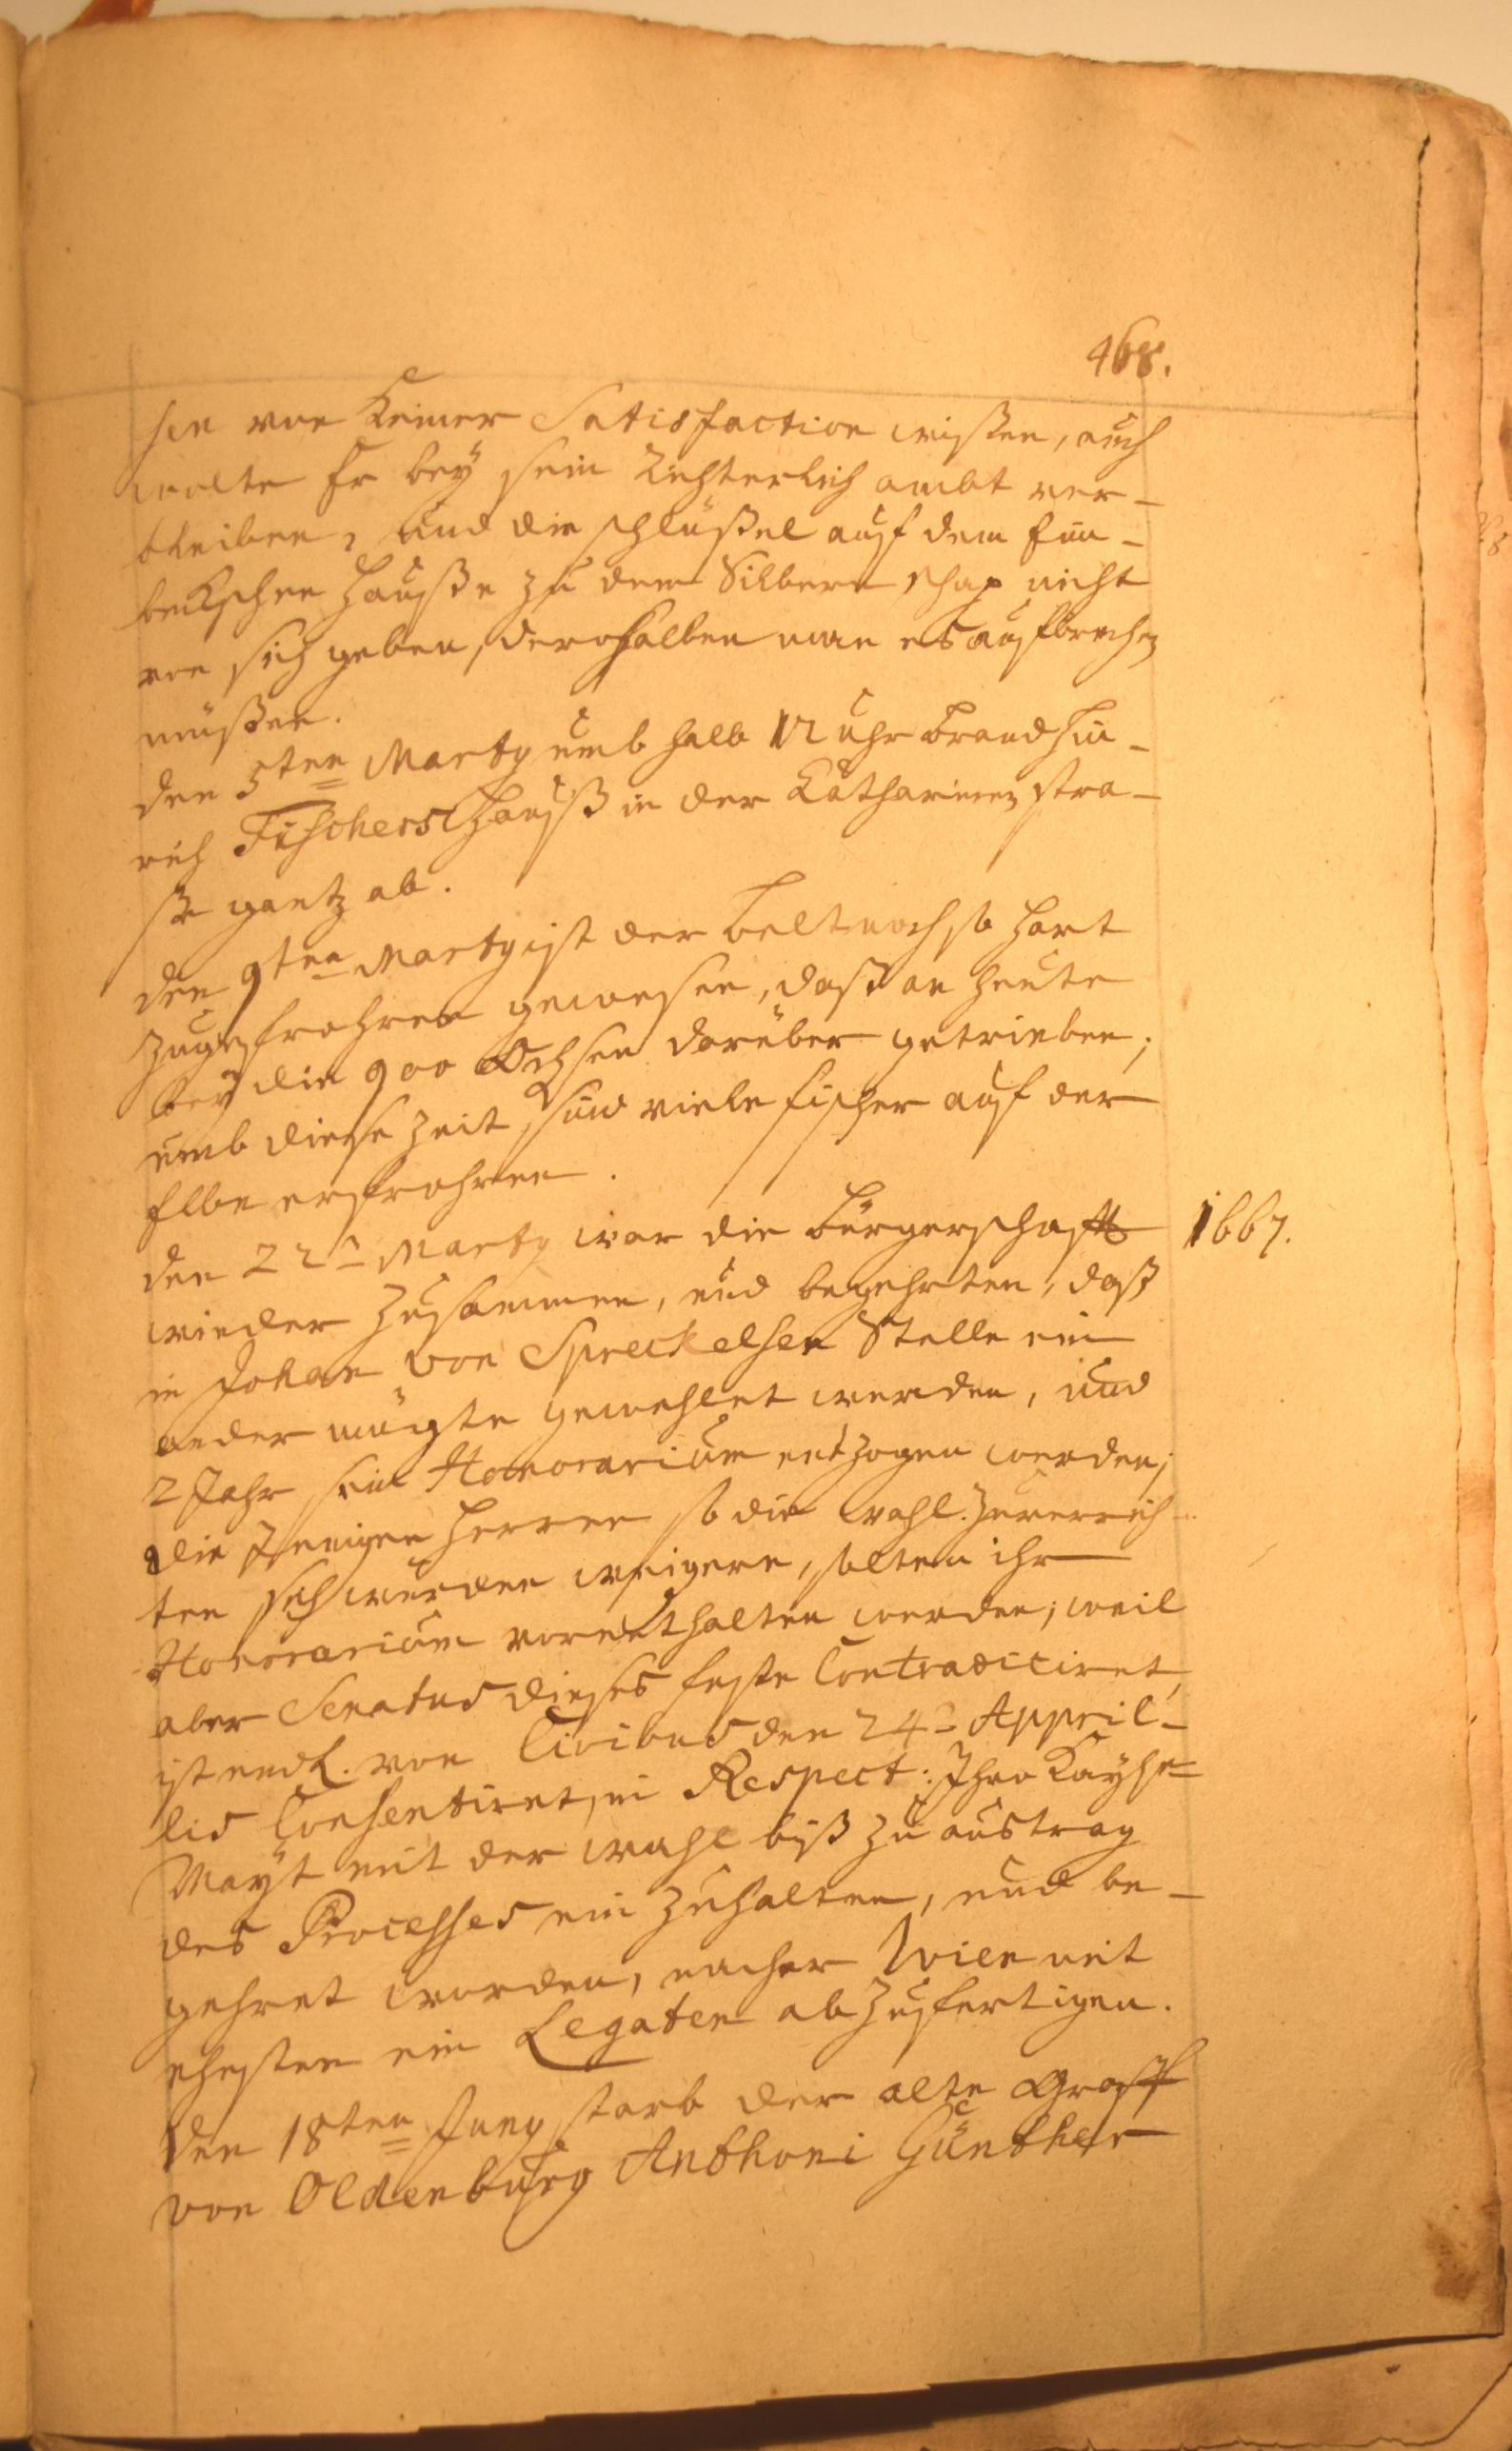 468.
sen von keiner Satisfaction wißen, auch
wolte Er bey sein Richterlich ambt ver-
bleiben, und die schlüßel auf dem Em-
beckschen Hauße zu dem Silbern schap nicht
von sich geben, derohalben man es aufbrechen
müßen.
den 5ten Marty umb halb 12 Uhr brand Hin-
rich Fischers Hauß in der Catharinen stra-
ße gantz ab.
den 9ten Marty ist der Belt noch so hart
zugefrohren gewesen, daß an heute
bey die 900 Ochsen darüber getrieben;
umb diese Zeit sind viele fischer auf der
Elbe erfrohren.
den 22n Marty war die Bürgerschafft
1667.
wieder zusammen, und begehrten, daß
in Johan von Spreckelsen Stelle ein
ander mögte gewehlet werden, und
2 Jahr sein Honorarium entzogen werden;
die Jenigen Herren so die Wahl zuverrich-
ten sich würden weigern, solten ihr
Honorarium vorenthalten werden; weil
aber Senatus dieses feste Contradiciret,
ist endl. von Civibus den 24n Appri-
lis Consentiret, in Respect: Ihro Kayse-
Mayt mit der Wahl biß zu austrag
des Processes ein zuhalten, und be-
gehret worden, nacher Wien mit
ehesten ein Legaten abzufertigen.
den 18ten Juny starb der alte Graff
von Oldenburg Anthoni Günther